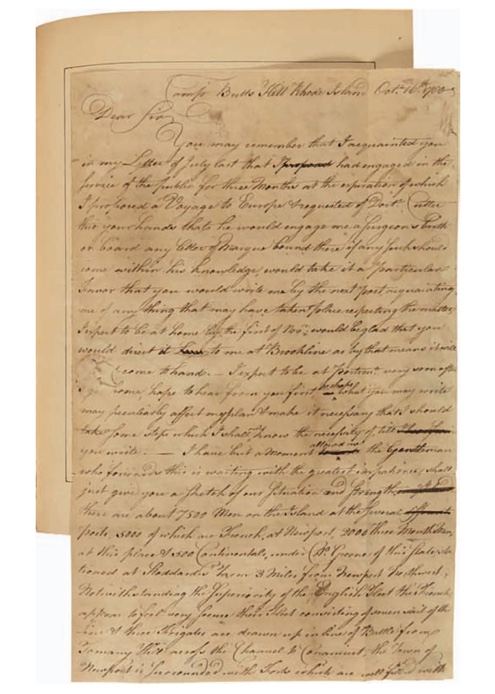 Camp Butts Hill Rhode Island Octr. 16th 1780
Dear Sir
You may remember that I acquainted you
in my Letter of July last that I proposed had engaged in the
service of the public for three Months at the expiration of which
I proposed a Voyage to Europe & requested of Doctr. Cutter
thro your hands that he would engage me a Surgeon's Birth
on board any letter of Marque bound there if any such should
come within his knowledge would take it a particular
favor that you would write me by the next Post acquainting
me of any thing that may have taken place respecting the matter,
I expect to be at home by the first of Novr. would be glad that you
would direct it to me at Brookline as by that means it will
come to hand. — I expect to be at Portsmo. very soon after
I go home hope to hear from you first, perhaps what you may write
may peculiarly affect my plan & make it necessary that I should
take some steps which I shall know the necessity of till
you write. — I have but a Moment the Gentleman
who forwards this is waiting with the greatest impatience, shall
just give you a sketch of our Situation and Strength
there are about 7500 Men on the Island at the several
posts, 5000 of which are French, at Newport, 2000 three Months Men,
at this place & 500 Continentals, under Cl. Greene of this State
tioned at Stoddard's Farm 3 Miles from Newport Northwest,
Notwithstanding the Superiority of the English Fleet the French
appear to feel very secure their Fleet consisting of seven sail of the
line & three Frigates are drawn up in line of Battle from
across the Channel to Conanicut, the Town of
Newport is surrounded with Forts which are well filled with